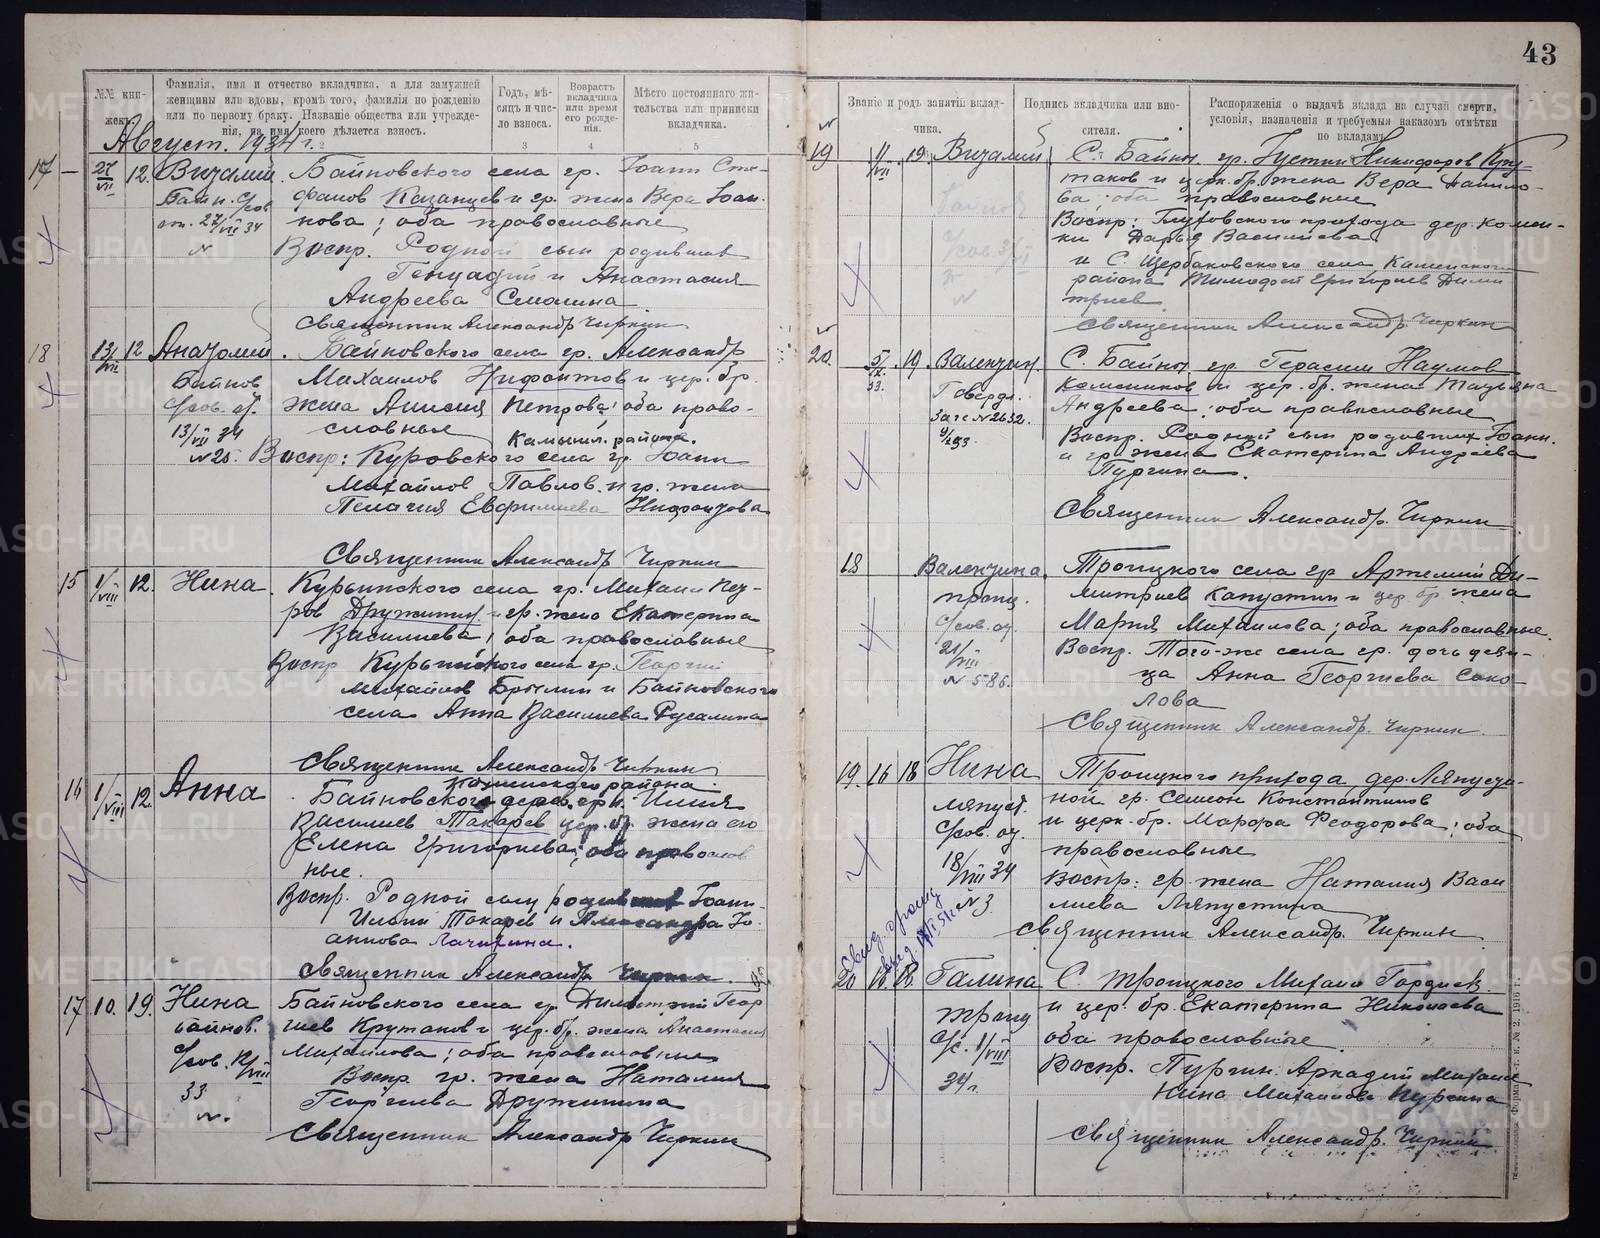 43
№№ кни-
жекъ.
Фамилія, имя и отчество вкладчика, а для замужней
женщины или вдовы, кромѣ того, фамилія по рожденію
или по первому браку. Названіе общества или учрежде-
нія, на имя коего дѣлается взносъ.
Годъ, мѣ-
сяцъ и чис-
ло взноса.
Возрастъ
вкладчика
или время
его рожде-
нія.
Мѣсто постояннаго жи-
тельства или приписки
вкладчика.
2
3
4
5
Август. 1934 г.
17 — 27/VII 12. Виталий. Байновского села гр. Иоанн Сте-
Байн. С/сов фанов Казанцев и гр. жена Вера Иоан-
от. 27/VII 34 нова; оба православные
N Воспр. Родной сын родивших
Генадий и Анастасия
Андреева Смолина
Священник Александр Чиркин
18 13/VII 12 Анатолий. Байновского села гр. Александр
Байнов Михаилов Нифонтов и цер. бр.
С/сов. от. жена Анисия Петрова; оба право-
13/VII 34 славные Камышл. района.
N 25. Воспр: Куровского села гр. Иоанн
Михайлов Павлов. и гр. жена
Пелагия Евфимиева Нифонтова
Священник Александр Чиркин
15 1/VIII 12. Нина. Курьинского села гр. Михаил Пет-
ров Дружинин. и гр. жена Екатерина
Василиева; оба православные
Воспр Курьинского села гр. Георгий
Михайлов Брылин и Байновского
села Анна Василиева Русалина
Священник Александр Чиркин
16 1/VIII 12. Анна района.
Байновского Илия
Василиев Токарев цер. бр. жена его
Елена Григориева; оба православ
ные.
Воспр. Родной сын Иоанн
Илиин Токарев и Александра Ио-
аннова
Священник Александр Чиркин.
17 10. 19. Нина Байновского села гр Димитрий Геор
Байнов. гиев Крутаков и цер. бр. жена Анастасия
С/сов. Михаилова; оба православные
33 Воспр. гр. жена Наталия
N. Георгиева Дружинина
Священник Александр Чиркин
Званіе и родъ занятій вклад-
чика.
Подпись вкладчика или вно-
сителя.
Распоряженія о выдачѣ вклада на случай смерти,
условія, назначенія и требуемыя наказомъ отмѣтки
по вкладамъ.
19 11/VII 19. Виталий С. Байн. гр. Иустин Никифоров Кру-
таков и церк. бр. жена Вера Данило-
ва; оба православные
Воспр: Глуховского прихода дер. Комен-
ки Дарья Василиева
и С. Щербаковского села Каменского
района Тимофей Григориев Дими
триев
Священник Александр Чиркин
20. 19. Валентин. С. Байн. гр. Герасим Наумов
33. Колесников и цер. бр. жена Татьяна
Загс N 2632. Андреева; оба православные
Воспр. Родной сын родивших Иоанн.
и гр. жена Екатерина Андреева
Пургина.
Священник Александр. Чиркин
18 Валентина. Троицкого села гр Артемий Ди-
троиц. митриев Капустин и цер. бр жена
С/сов. от. Мария Михаилова; оба православные.
21/VIII Воспр. Того-же села гр. дочь деви-
N 586. ца Анна Георгиева Соко-
лова
Священник Александр. Чиркин.
19. 16 18 Нина Троицкого прихода дер. Ляпусти-
ляпуст. ной гр. Семион Константинов
С/сов. от. и церк. бр. Марфа Феодорова; оба
18/VIII 34 православные
N 3. Воспр: гр. жена Наталия Васи
лиева Ляпустина
Священник Александр. Чиркин
20 Галина С. Троицкого Михаил Гордиев.
троиц и цер. бр. Екатерина Николаева
С/с. 1/VIII оба православные.
34 г. Воспр. Пургин. Аркадий Михаил
Нина Михаилова Пургина
Священник Александр. Чиркин
METRIKI.GASO-URAL.RU